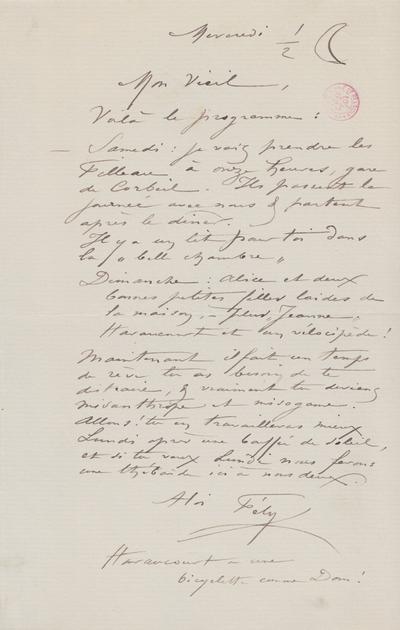 Mercredi 1/2
Mon Vieil,
Voilà le programme :
— Samedi : je vais prendre les
Filleau à onze heures, gare
de Corbeil. Ils passent la
journée avec nous & partent
après le dîner.
Il y a un lit pour toi dans
la „ belle chambre „
Dimanche : Alice et deux
bonnes petites filles laides de
la maison, – plus, Jeanne.
Haraucourt et un vélocipède !
Maintenant il fait un temps
de rêve, tu as besoin de te
distraire, & vraiment tu deviens
misanthrope et misogame.
Allons ! tu en travailleras mieux
Lundi après une bouffée de soleil,
et si tu veux Lundi nous ferons
une thébaïde ici à nous deux.
À toi Fély
Haraucourt a une
bicyclette comme Dom !